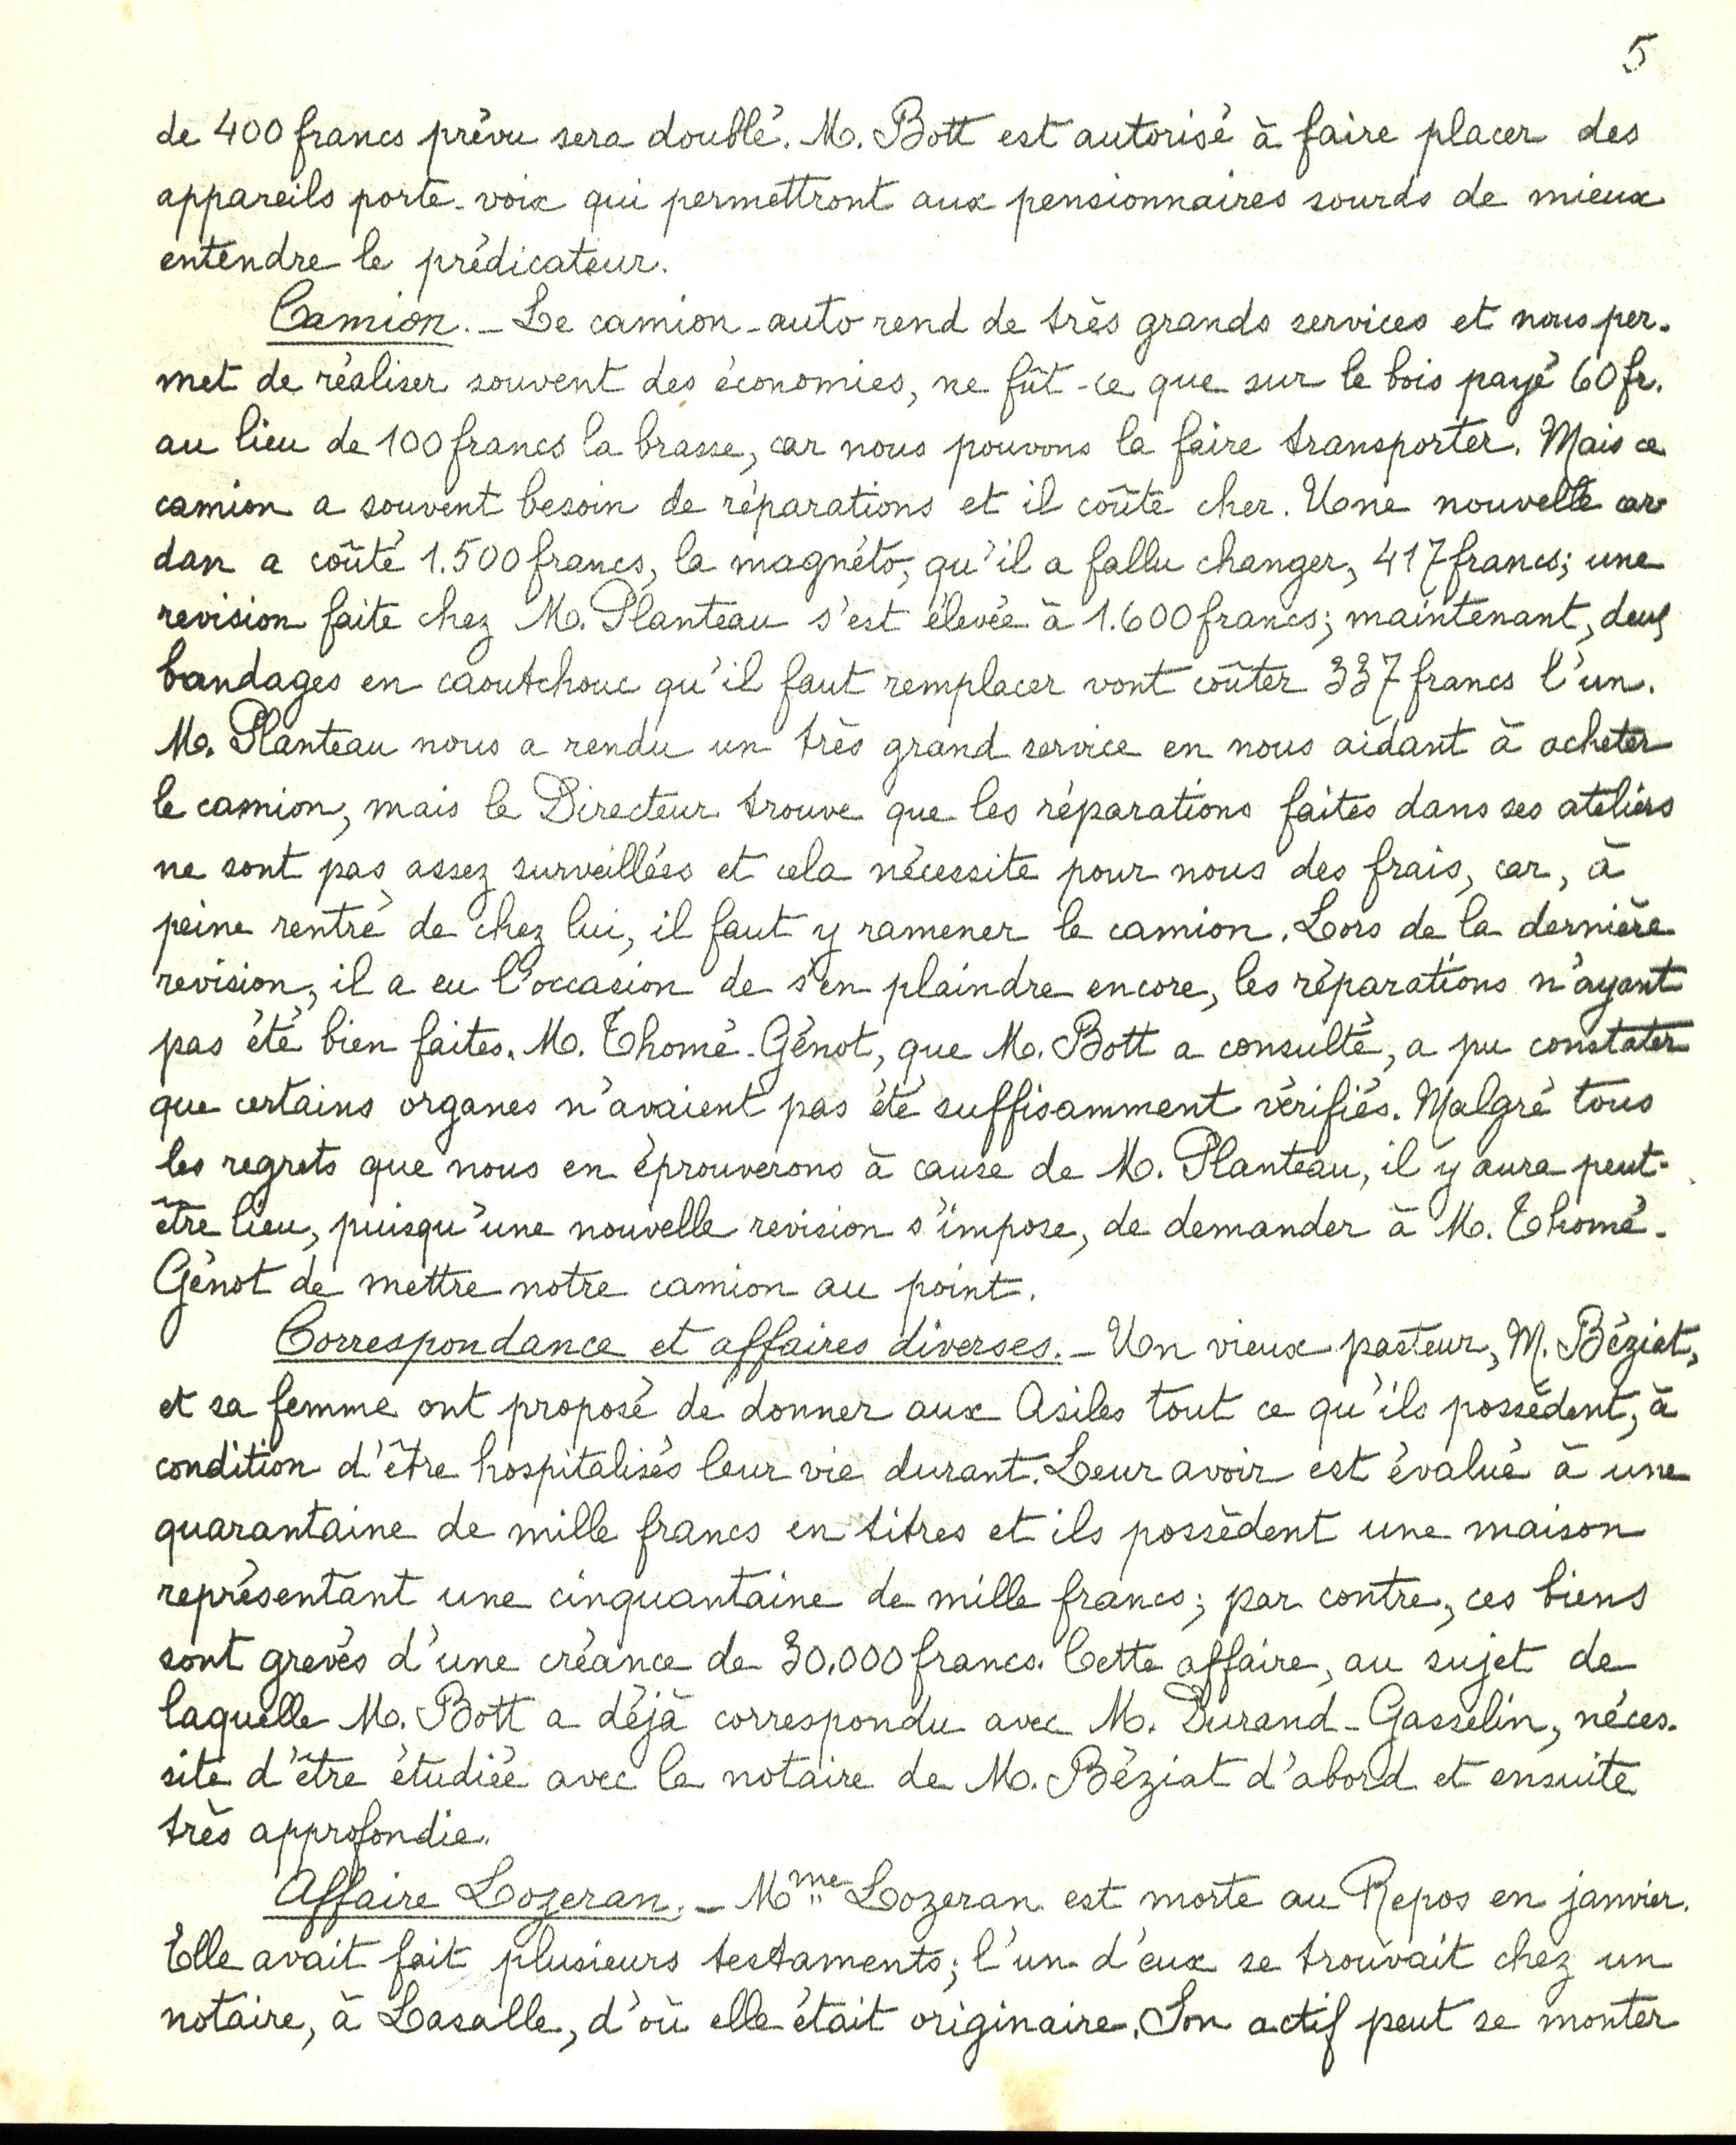 5
de 400 francs prévu sera doublé. M. Bott est autorisé à faire placer des
appareils porte-voix qui permettront aux pensionnaires sourds de mieux
entendre le prédicateur.
Camion. - Le camion-auto rend de très grands services et nous per-
met de réaliser souvent des économies, ne fût-ce que sur le bois payé 60 fr.
au lieu de 100 francs la brasse, car nous pouvons la faire transporter. Mais ce
camion a souvent besoin de réparations et il coûte cher. Une nouvelle car
dan a coûté 1.500 francs, la magnéto, qu'il a fallu changer, 417 francs; une
revision faite chez M. Planteau s'est élevée à 1.600 francs; maintenant, deux
bandages en caoutchouc qu'il faut remplacer vont coûter 337 francs l'un.
M. Planteau nous a rendu un très grand service en nous aidant à acheter
le camion, mais le Directeur trouve que les réparations faites dans ses ateliers
ne sont pas assez surveillées et cela nécessite pour nous des frais, car, à
peine rentré de chez lui, il faut y ramener le camion. Lors de la dernière
revision, il a eu l'occasion de s'en plaindre encore, les réparations n'ayant
pas été bien faites. M. Thomé-Génot, que M. Bott a consulté, a pu constater
que certains organes n'avaient pas été suffisamment vérifiés. Malgré tous
les regrets que nous en éprouverons à cause de M. Planteau, il y aura peut-
être lieu, puisqu'une nouvelle revision s'impose, de demander à M. Thomé-
Génot de mettre notre camion au point.
Correspondance et affaires diverses. - Un vieux pasteur, M. Béziat,
et sa femme ont proposé de donner aux Asiles tout ce qu'ils possèdent, à
condition d'être hospitalisés leur vie durant. Leur avoir est évalué à une
quarantaine de mille francs en titres et ils possèdent une maison
représentant une cinquantaine de mille francs; par contre, ces biens
sont grevés d'une créance de 30.000 francs. Cette affaire, au sujet de
laquelle M. Bott a déjà correspondu avec M. Durand-Gasselin, néces-
site d'être étudiée avec le notaire de M. Béziat d'abord et ensuite
très approfondie.
Affaire Lozeran. - Mme Lozeran est morte au Repos en janvier.
Elle avait fait plusieurs testaments; l'un d'eux se trouvait chez un
notaire, à Lasalle, d'où elle était originaire. Son actif peut se monter